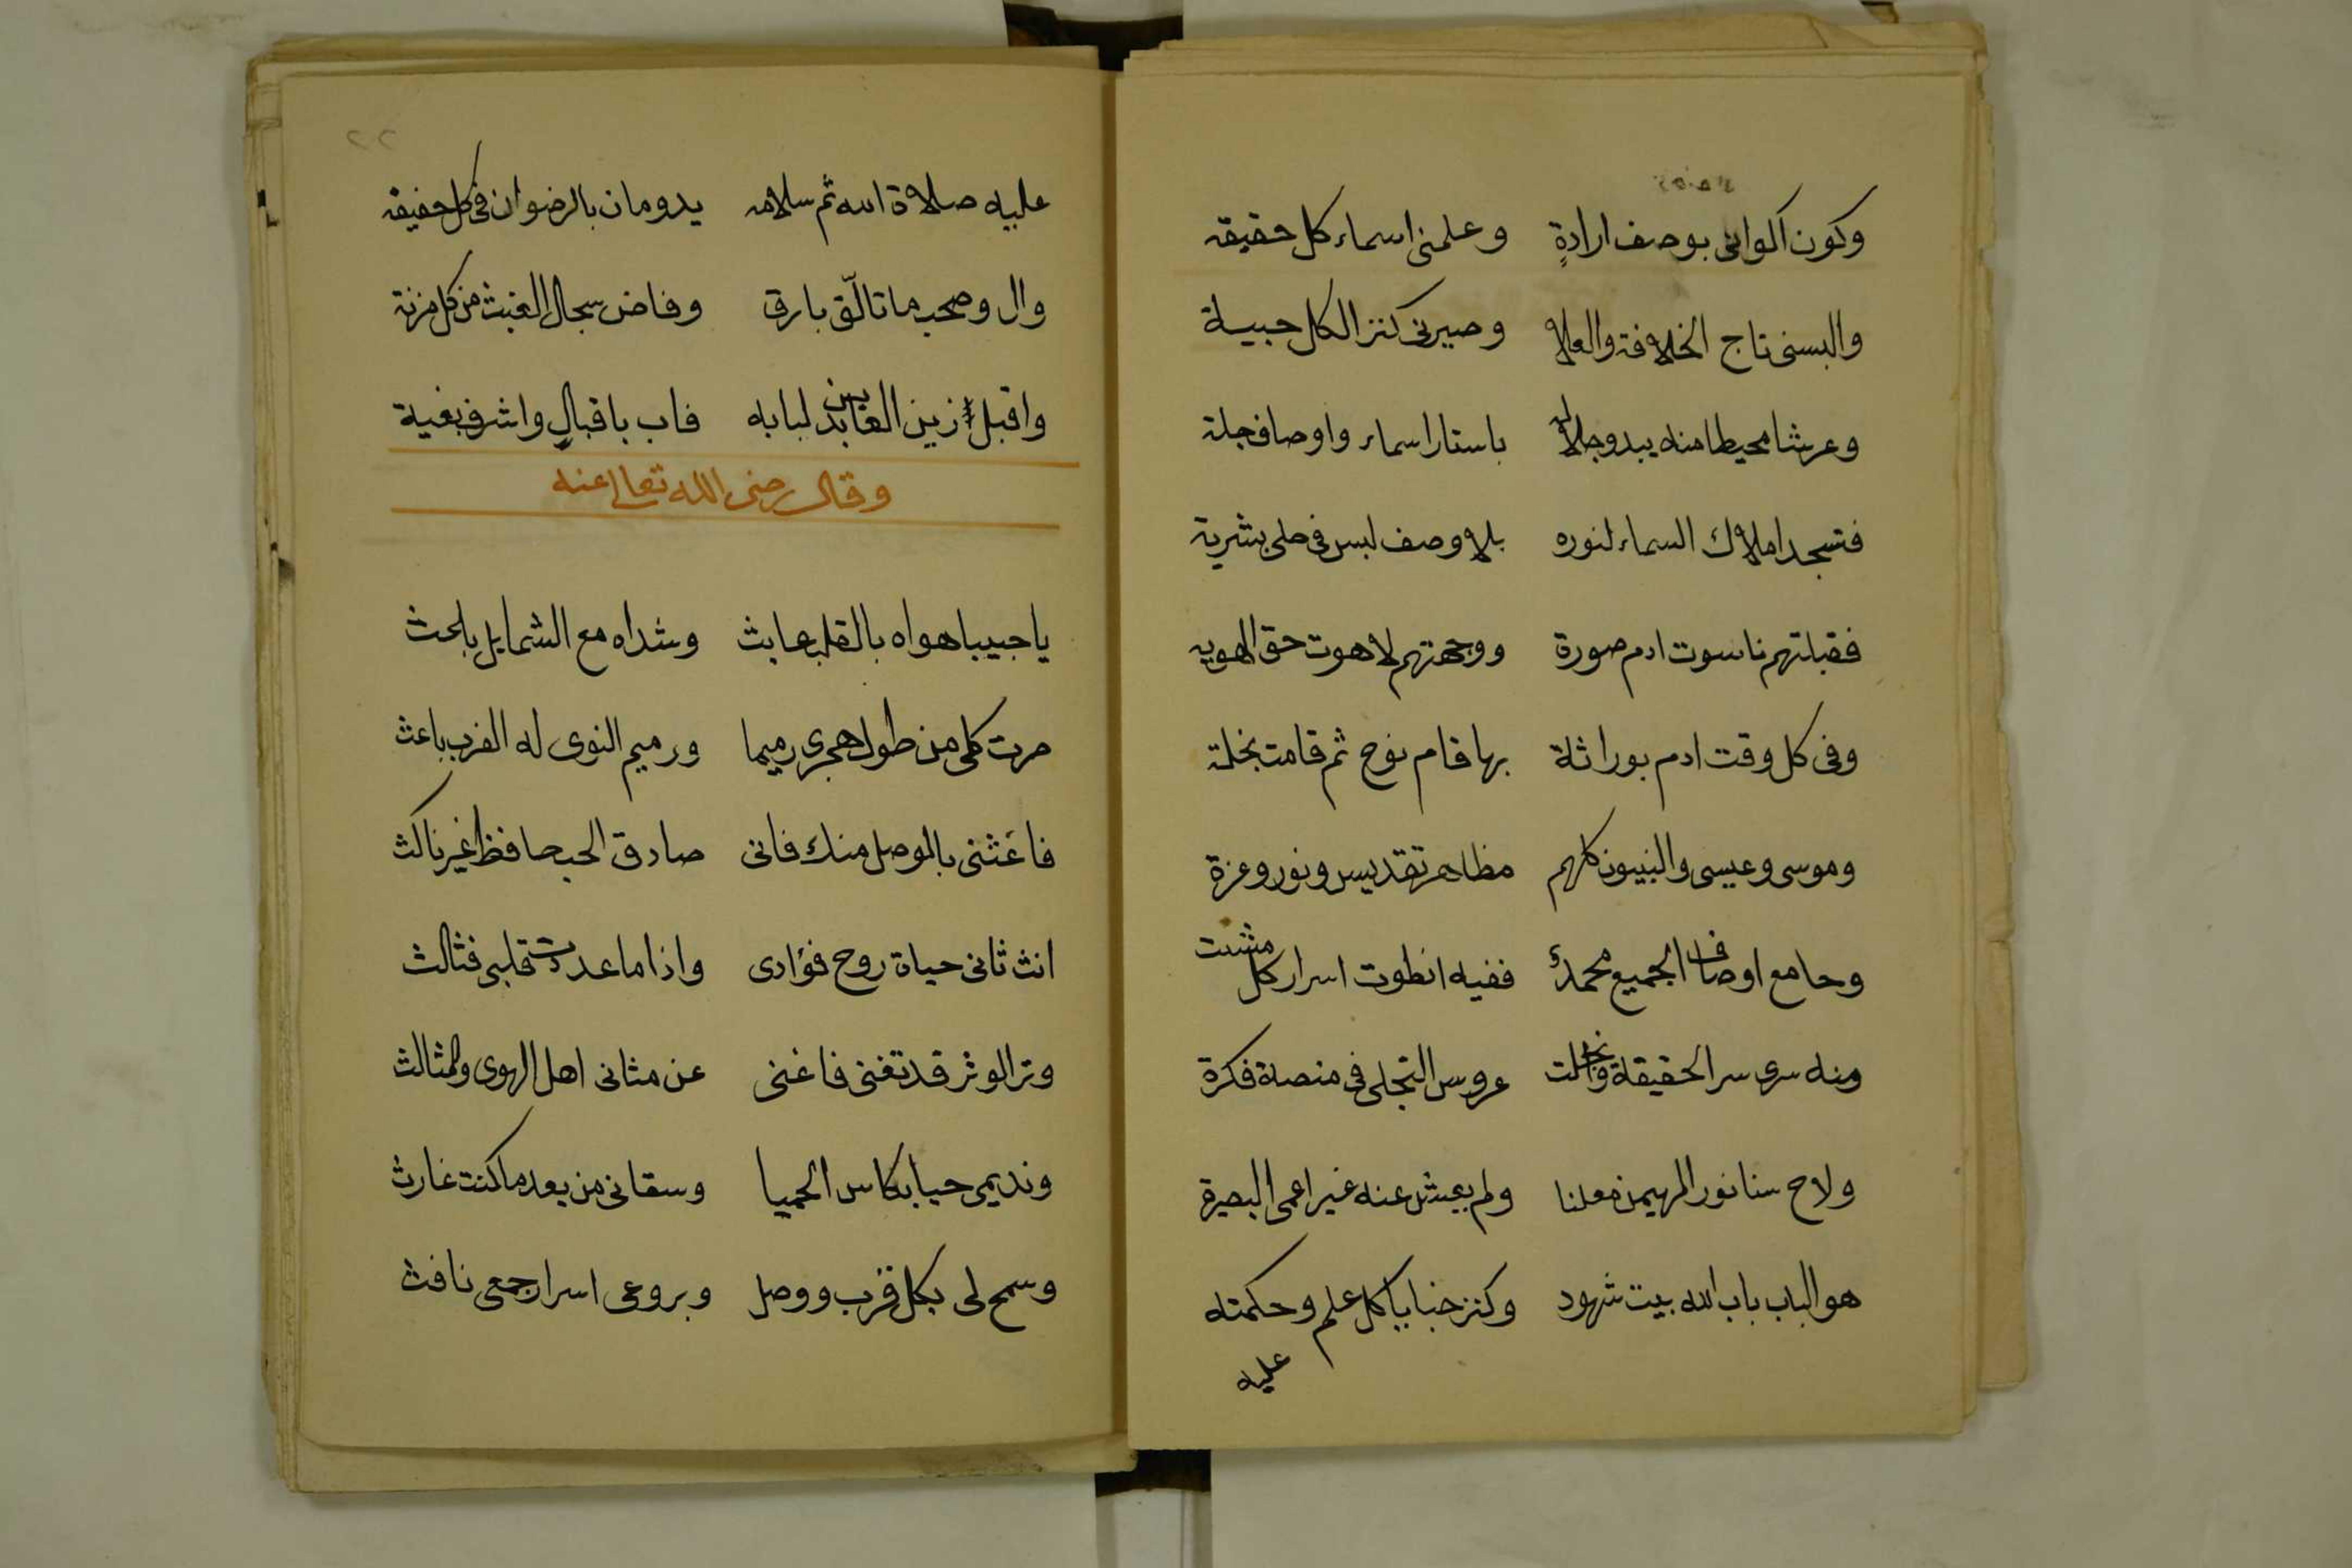 وكون اكوانى بوصف ارادةٍ وعلمنى اسماء كل حقيقة
والبسنى تاج الخلافة والعلا وصيرنى كنز الكل جبيلة
وعرشا محيطا منه يبدو جلاله باستار اسماء واوصاف جلة
فتسجد املاك السماء لنوره بلا وصف لبس فى حلى بشرية
فقبلتهم ناسوت ادم صورة ووجهتهم لاهوت حق الهويه
وفى كل وقت ادم بوراثة بها قام نوح ثم قامت بخلة
وموسى وعيسى والنبيون كلهم مظاهر تقديس ونور وعزة
وجامع اوصاف الجميع محمدٌ ففيه انطوت اسرار كل مشتت
ومنه سرى سر الحقيقة وانجلت عروس التجلى فى منصة فكرة
ولاح سنا نور المهيمن معلنا ولم يعش عنه غير اعمى البصيرة
هو الباب باب الله بيت شهود وكنز خبايا كل علم وحكمته
عليه
٢٢
عليه صلاة الله ثم سلامه يدومان بالرضوان فى كل حقيقة
وال وصحب ما تالّق بارق وفاض سجال الغيث من كل مزنة
واقبل زين العابدين لبابه فاب باقبالٍ واشرف بغية
وقال رضى الله تعالى عنه
يا حبيبا هواه بالقلب عابث وشداه مع الشمايل باحث
صرت كلى من طول هجرى رميما ورميم النوى له القرب باعث
فاغثنى بالموصل منك فانى صادق الحب حافظ غير ناكث
انت ثانى حياة روح فؤادى واذا ما عددت قلبى فثالث
وتر الوتر قد تغنى فاغنى عن مثانى اهل الهوى والمثالث
ونديمى حيا بكاس الحميا وسقانى من بعد ما كنت غارث
وسمح لى بكل قرب ووصل وبروعى اسرار جمعى نافث